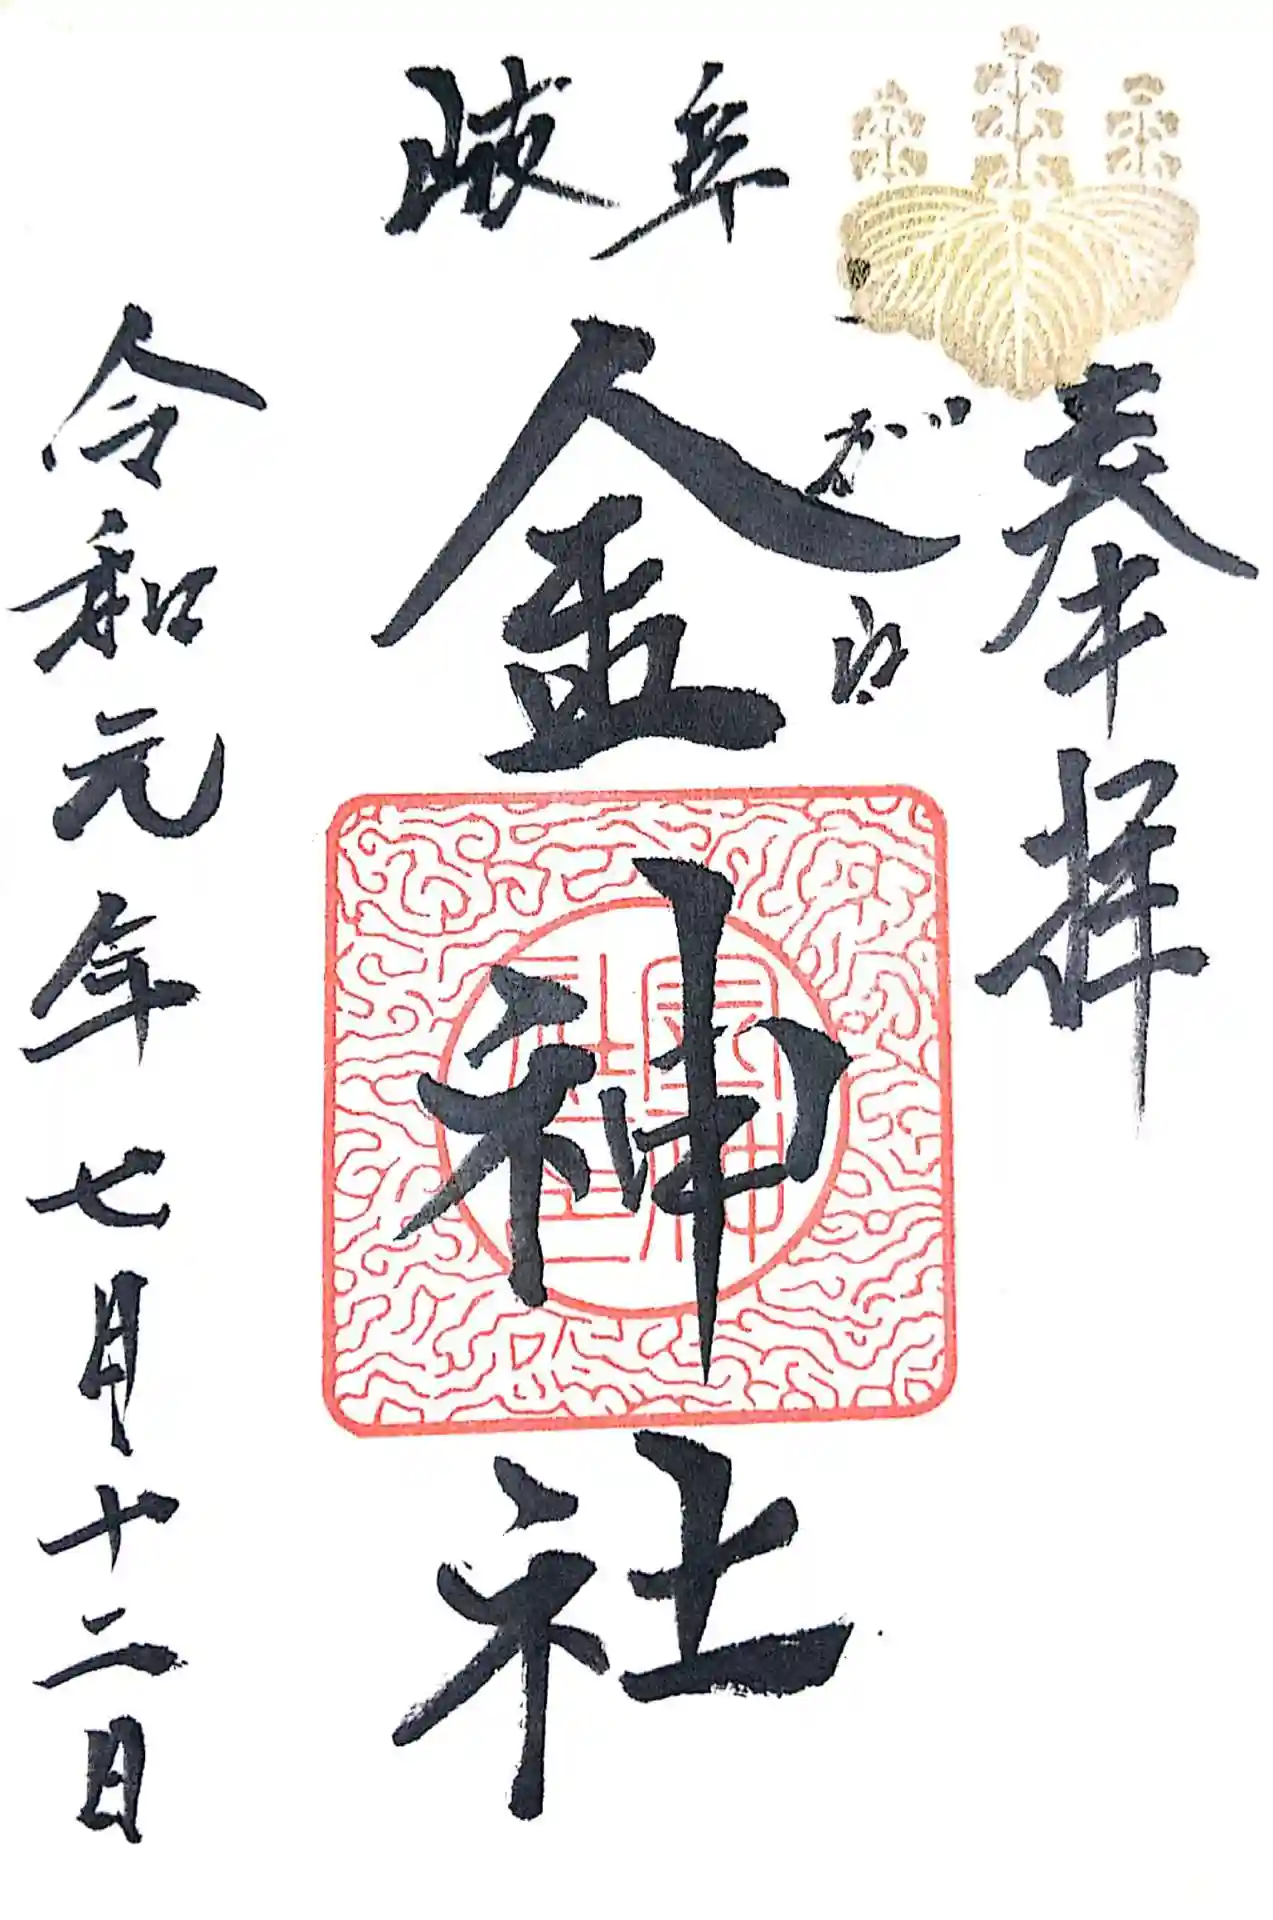 奉拝
岐阜
金神社
令和元年七月十二日